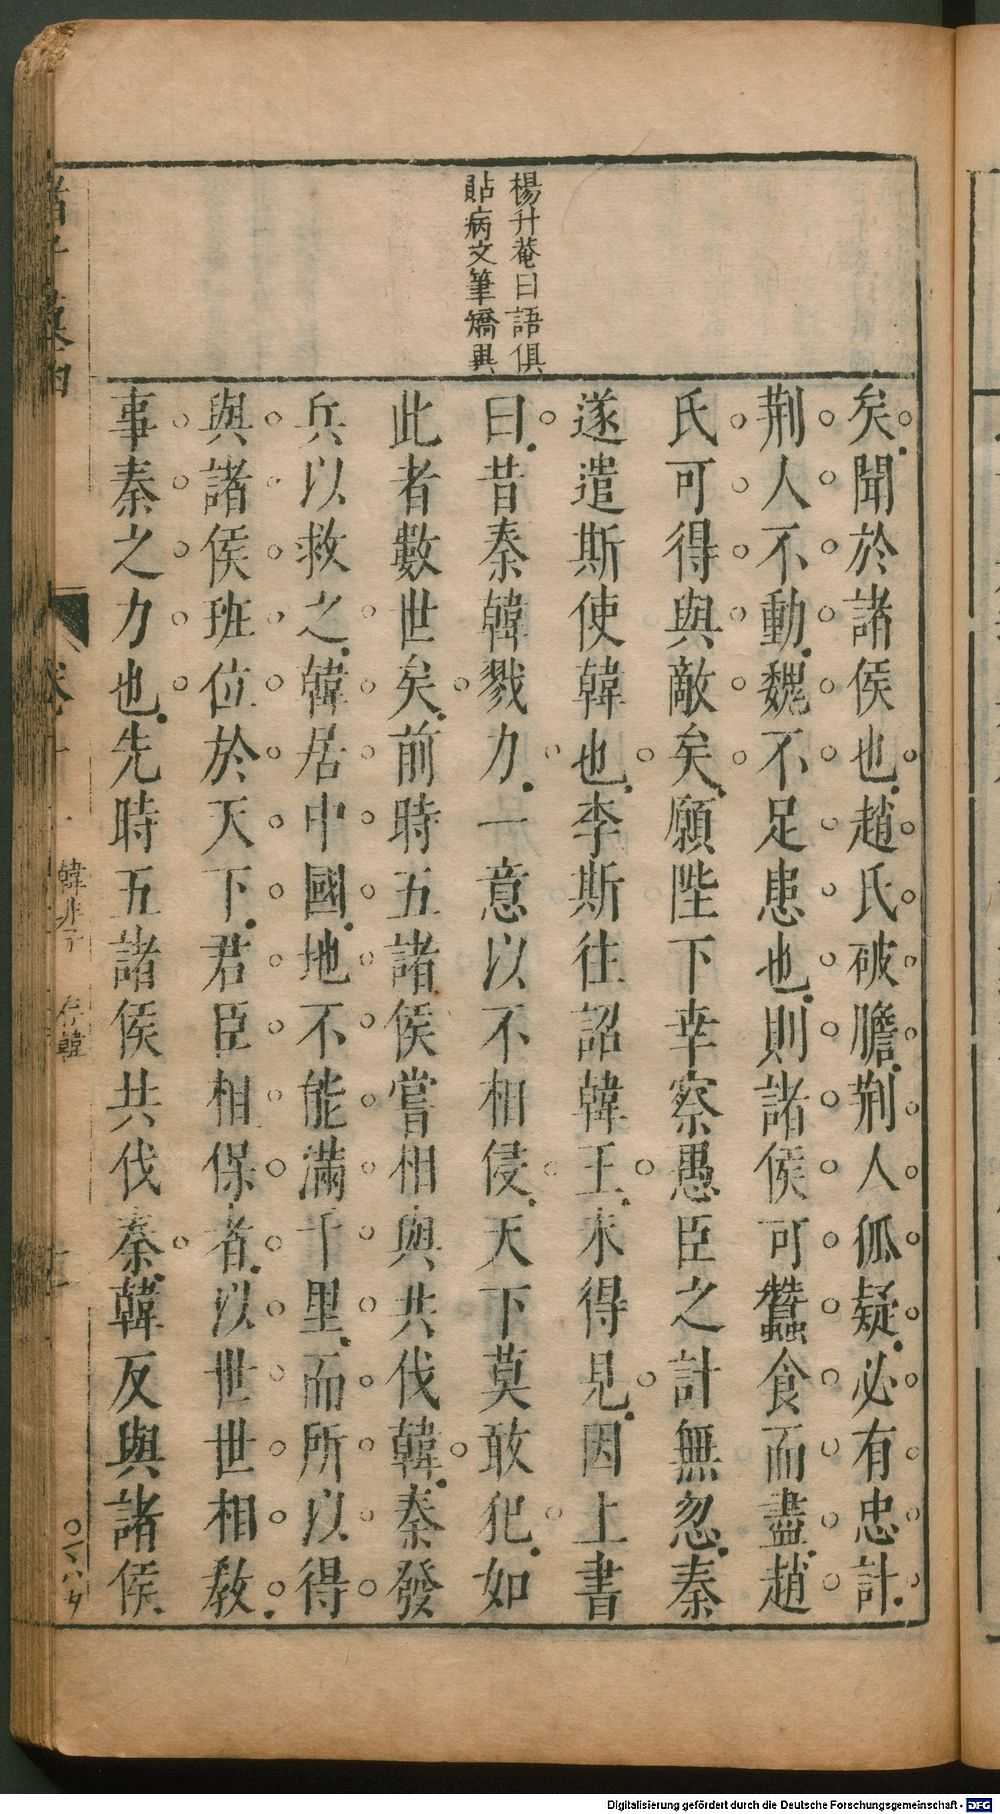 楊升菴曰語俱
貼病文筆矯異
矣聞於諸侯也趙氏破膽荆人狐疑必有忠計
荆人不動魏不足患也則諸侯可蠶食而盡趙
氏可得與敵矣願陛下幸察愚臣之計無忽秦
遂遣斯使韓也李斯往詔韓王未得見因上書
曰昔秦韓戮力一意以不相侵天下莫敢犯如
此者數世矣前時五諸侯嘗相與共伐韓秦發
兵以救之韓居中國地不能滿千里而所以得
與諸侯班位於天下君臣相保者以世世相教
事秦之力也先時五諸侯共伐秦韓反與諸侯
韓非子 存韓
Digitalisierung gefördert durch die Deutsche Forschungsgemeinschaft - DFG